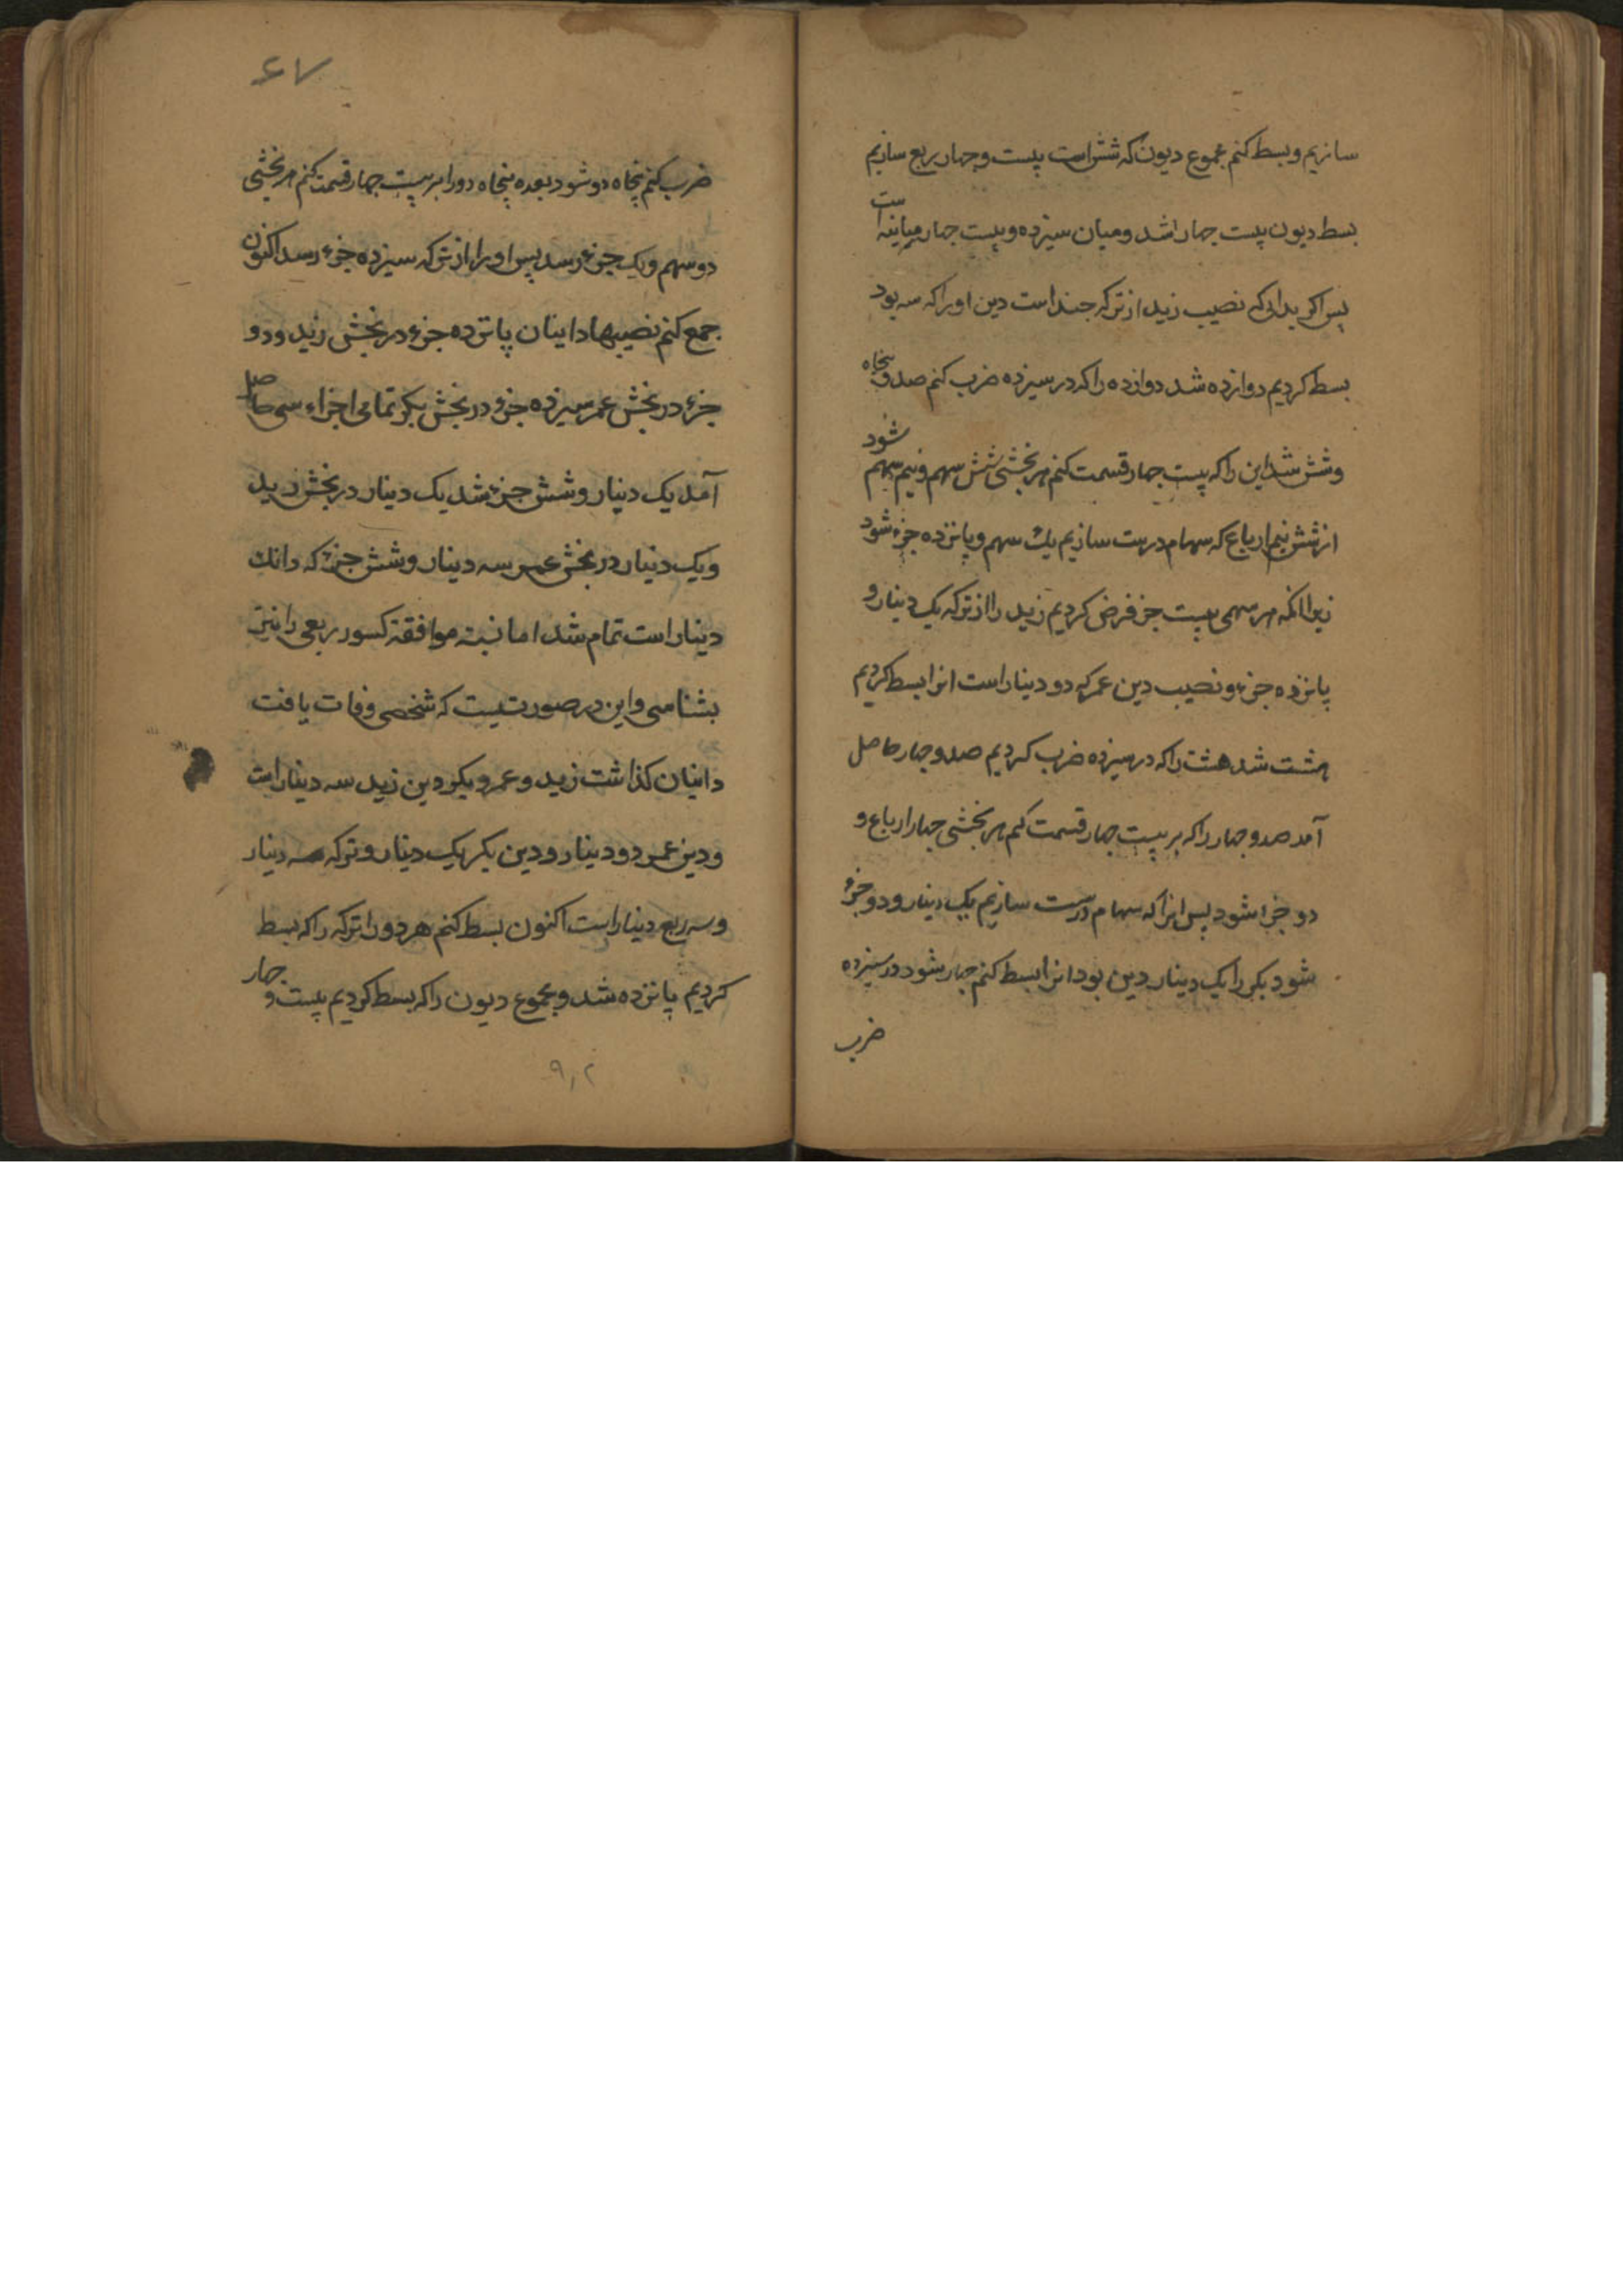 سازیم و بسط کنم مجموع دیون که شش است بیست و چهار ربع سازیم
بسط دیون بیست جهار اشد و میان سیزده و بیست جهار مباینه است
پس اکر بدانی که نصیب زید از ترکه جند است دین او را که سه بود
بسط کردیم دوازده شد دوازده را که در سیزده ضرب کنم صد و پنجاه
و شش شد این را که بیست جهار قسمت کنم هر بخشی شش سهم و نیم سهم شود
از شش نیم ارباع که سهام درست سازیم یک سهم و پانزده جزء شود
زیرا انکه هر سهمی بیست جز فرض کردیم زید را از ترکه یک دینار و
پانزده جزء و نصیب دین عمر که دو دینار است انرا بسط کردیم
هشت شد هشت را که در سیزده ضرب کردیم صد و جهار حاصل
آمد صد و جهار را که بر بیست جهار قسمت کنم هر بخشی جهار ارباع و
دو جزا شود پس انرا که سهام درست سازیم یک دینار و دو جزء
شود بکر را یک دینار دین بود انرا بسط کنم جهار شود در سیزده
ضرب
۶۷
ضرب کنم پنجاه دو شود بعده پنجاه دو را بر بیست جهار قسمت کنم هر بخشی
دو سهم و یک جزء رسد پس او را از ترکه سیزده جزء رسد اکنون
جمع کنم نصیبها داینان پانزده جزء در بخش زید و دو
جزء در بخش عمر سیزده جزء در بخش بکر تمامی اجزاء سی حاصل
آمد یک دینار و شش جزء شد یک دینار در بخش زید
و یک دینار در بخش عمر سه دینار و شش جزء که دانک
دینار است تمام شد اما نسبة موافقة کسور ربعی را نیز
بشناسی و این در صورتیست که شخصی وفات یافت
داینان کذاشت زید و عمر و بکر دین زید سه دینار است
و دین عمر دو دینار و دین بکر یک دینار و ترکه سه دینار
و سه ربع دینار است اکنون بسط کنم هر دو را ترکه را که بسط
کردیم پانزده شد و مجموع دیون را که بسط کردیم بیست و جهار